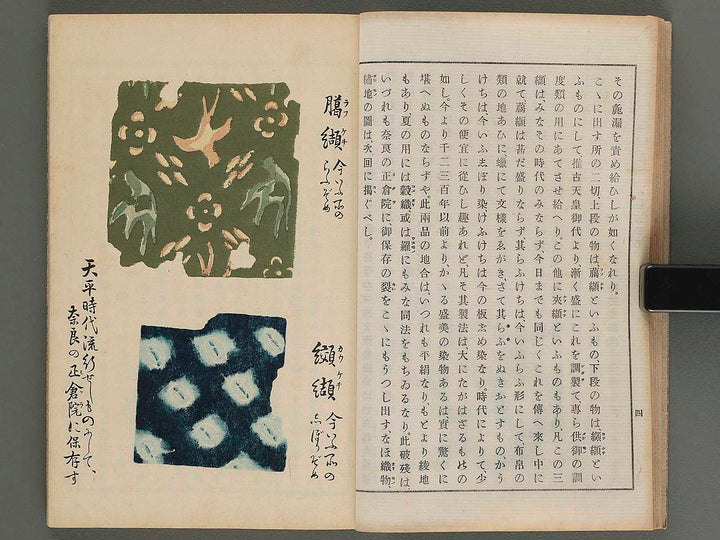 その麁漏を責め給ひしが如くなれり。
こゝに出す所の二切上段の物は﨟纈といふもの下段の物は纐纈とい
ふものにして推古天皇御代より漸く盛にこれを調製て専ら供御の調
度類の用にあてさせ給へり。この他に夾纈といふものもあり、凡この三
纈はみなその時代のみならず今日までも同じくこれを傳へ來し中に
就て﨟纈は甚だ盛りならず其らふけちは今いふらふ形にして布帛の
類の地あひに蠟にて文様をゑがきさて其らふをぬきおとすものかう
けちは、今いふゑぼり染けふけちは今の板ゑめ染なり。時代によりて、少
しくその便宜に從ひし趣あれど、凡そ其製法は大にたがはざるものゝ
如し。今より千二三百年以前より、かゝる盛美の染物あるは實に驚くに
堪へぬものならずや此兩品の地合はいつれも平絹なり。もとより綾地
もあり夏の用には縠織或は羅にもみな同法をもちゐるなり此破殘は
いづれも奈良の正倉院に御保存の裂をこゝにもうつし出す、なほ織物
繍地の圖は次回に揭ぐべし。
四
﨟纈 ラフケチ
今いふ所の
らふぞめ
纐纈 カウケチ
今いふ所の
しぼりぞめ
天平時代流行せしものにして、
奈良の正倉院に保存す